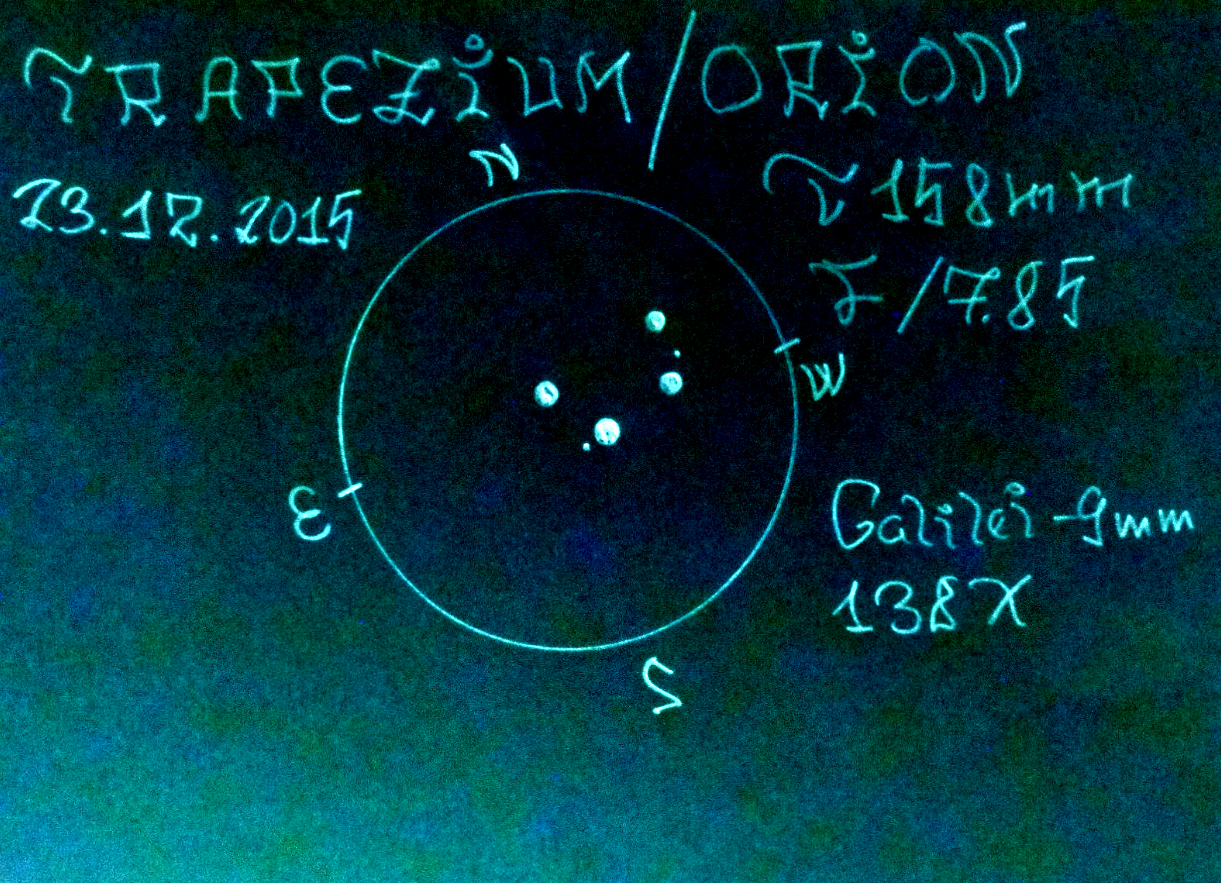 TRAPEZiUM/ORiON
N
23.12.2015
T 158mm
F/7.85
W
E
Galilei-9mm
138X
S